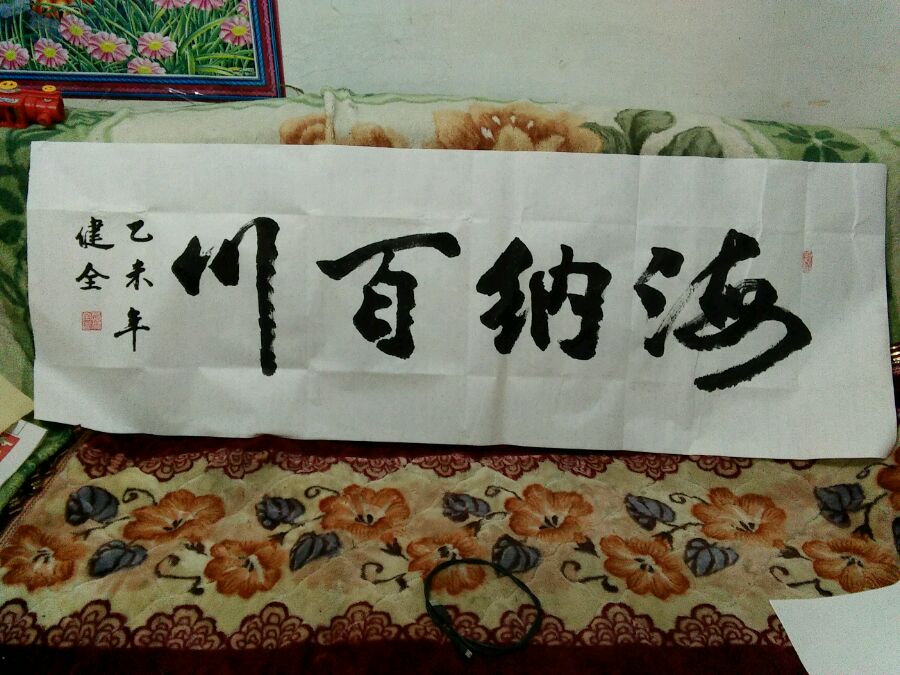 海纳百川
乙未年
健全